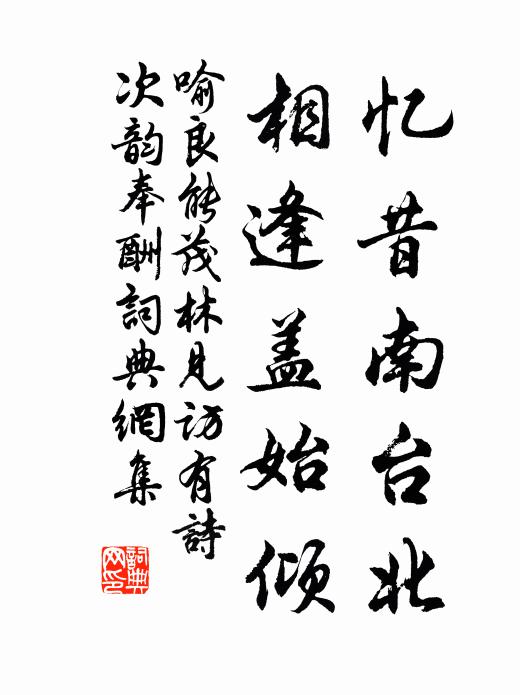 忆昔南台北
相逢盖始倾
喻良能茂林见访有詩
次韵奉酬詞典網集
詞典网印